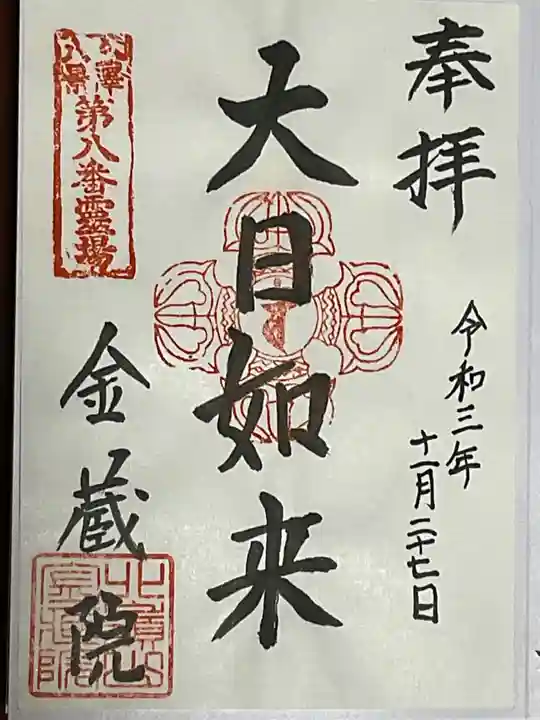 奉拝
令和三年
十一月二十七日
大日如来
第八番霊場
金蔵院